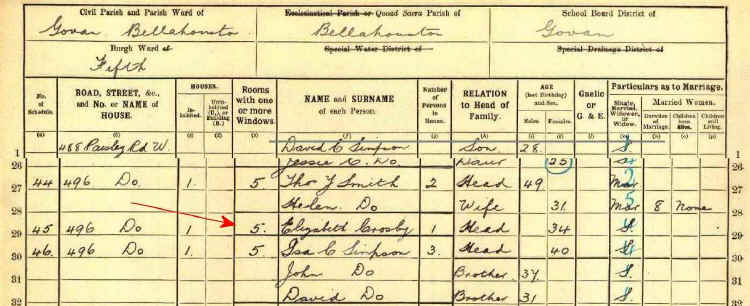 Civil Parish and Parish Ward of Ecclesiastical Parish or Quoad Sacra Parish of School Board District of
Govan Bellahouston Bellahouston Govan
Burgh Ward of Special Water District of Special Drainage District of
Fifth
No. of Schedule. ROAD, STREET, &c., and No. or NAME of HOUSE. HOUSES. Rooms with one or more Windows. NAME and SURNAME of each Person. Number of Persons in House. RELATION to Head of Family. AGE (last Birthday) and Sex. Gaelic or G. & E. Particulars as to Marriage.
Inhabited Uninhabited (U.), or Building (B.) Males Females Single, Married, Widower, or Widow. Married Women. Duration of Marriage. Children born Alive. Children still Living.
1 488 Paisley Rd W. David C Simpson Son 28 S. 1
26 Jessie C. Do Daur 25 26
27 44 496 Do 1. 5. Thos Y Smith 2 Head 49 Mar 27
28 Helen Do Wife 31 Mar 8 None 28
29 45 496 Do 1 5. Elizabeth Crosby 1 Head 34 S. 29
30 46. 496 Do 1 5. Isa C Simpson 3. Head 40 S. 30
31 John Do Brother 37 S. 31
32 David Do Brother 31 S. 32